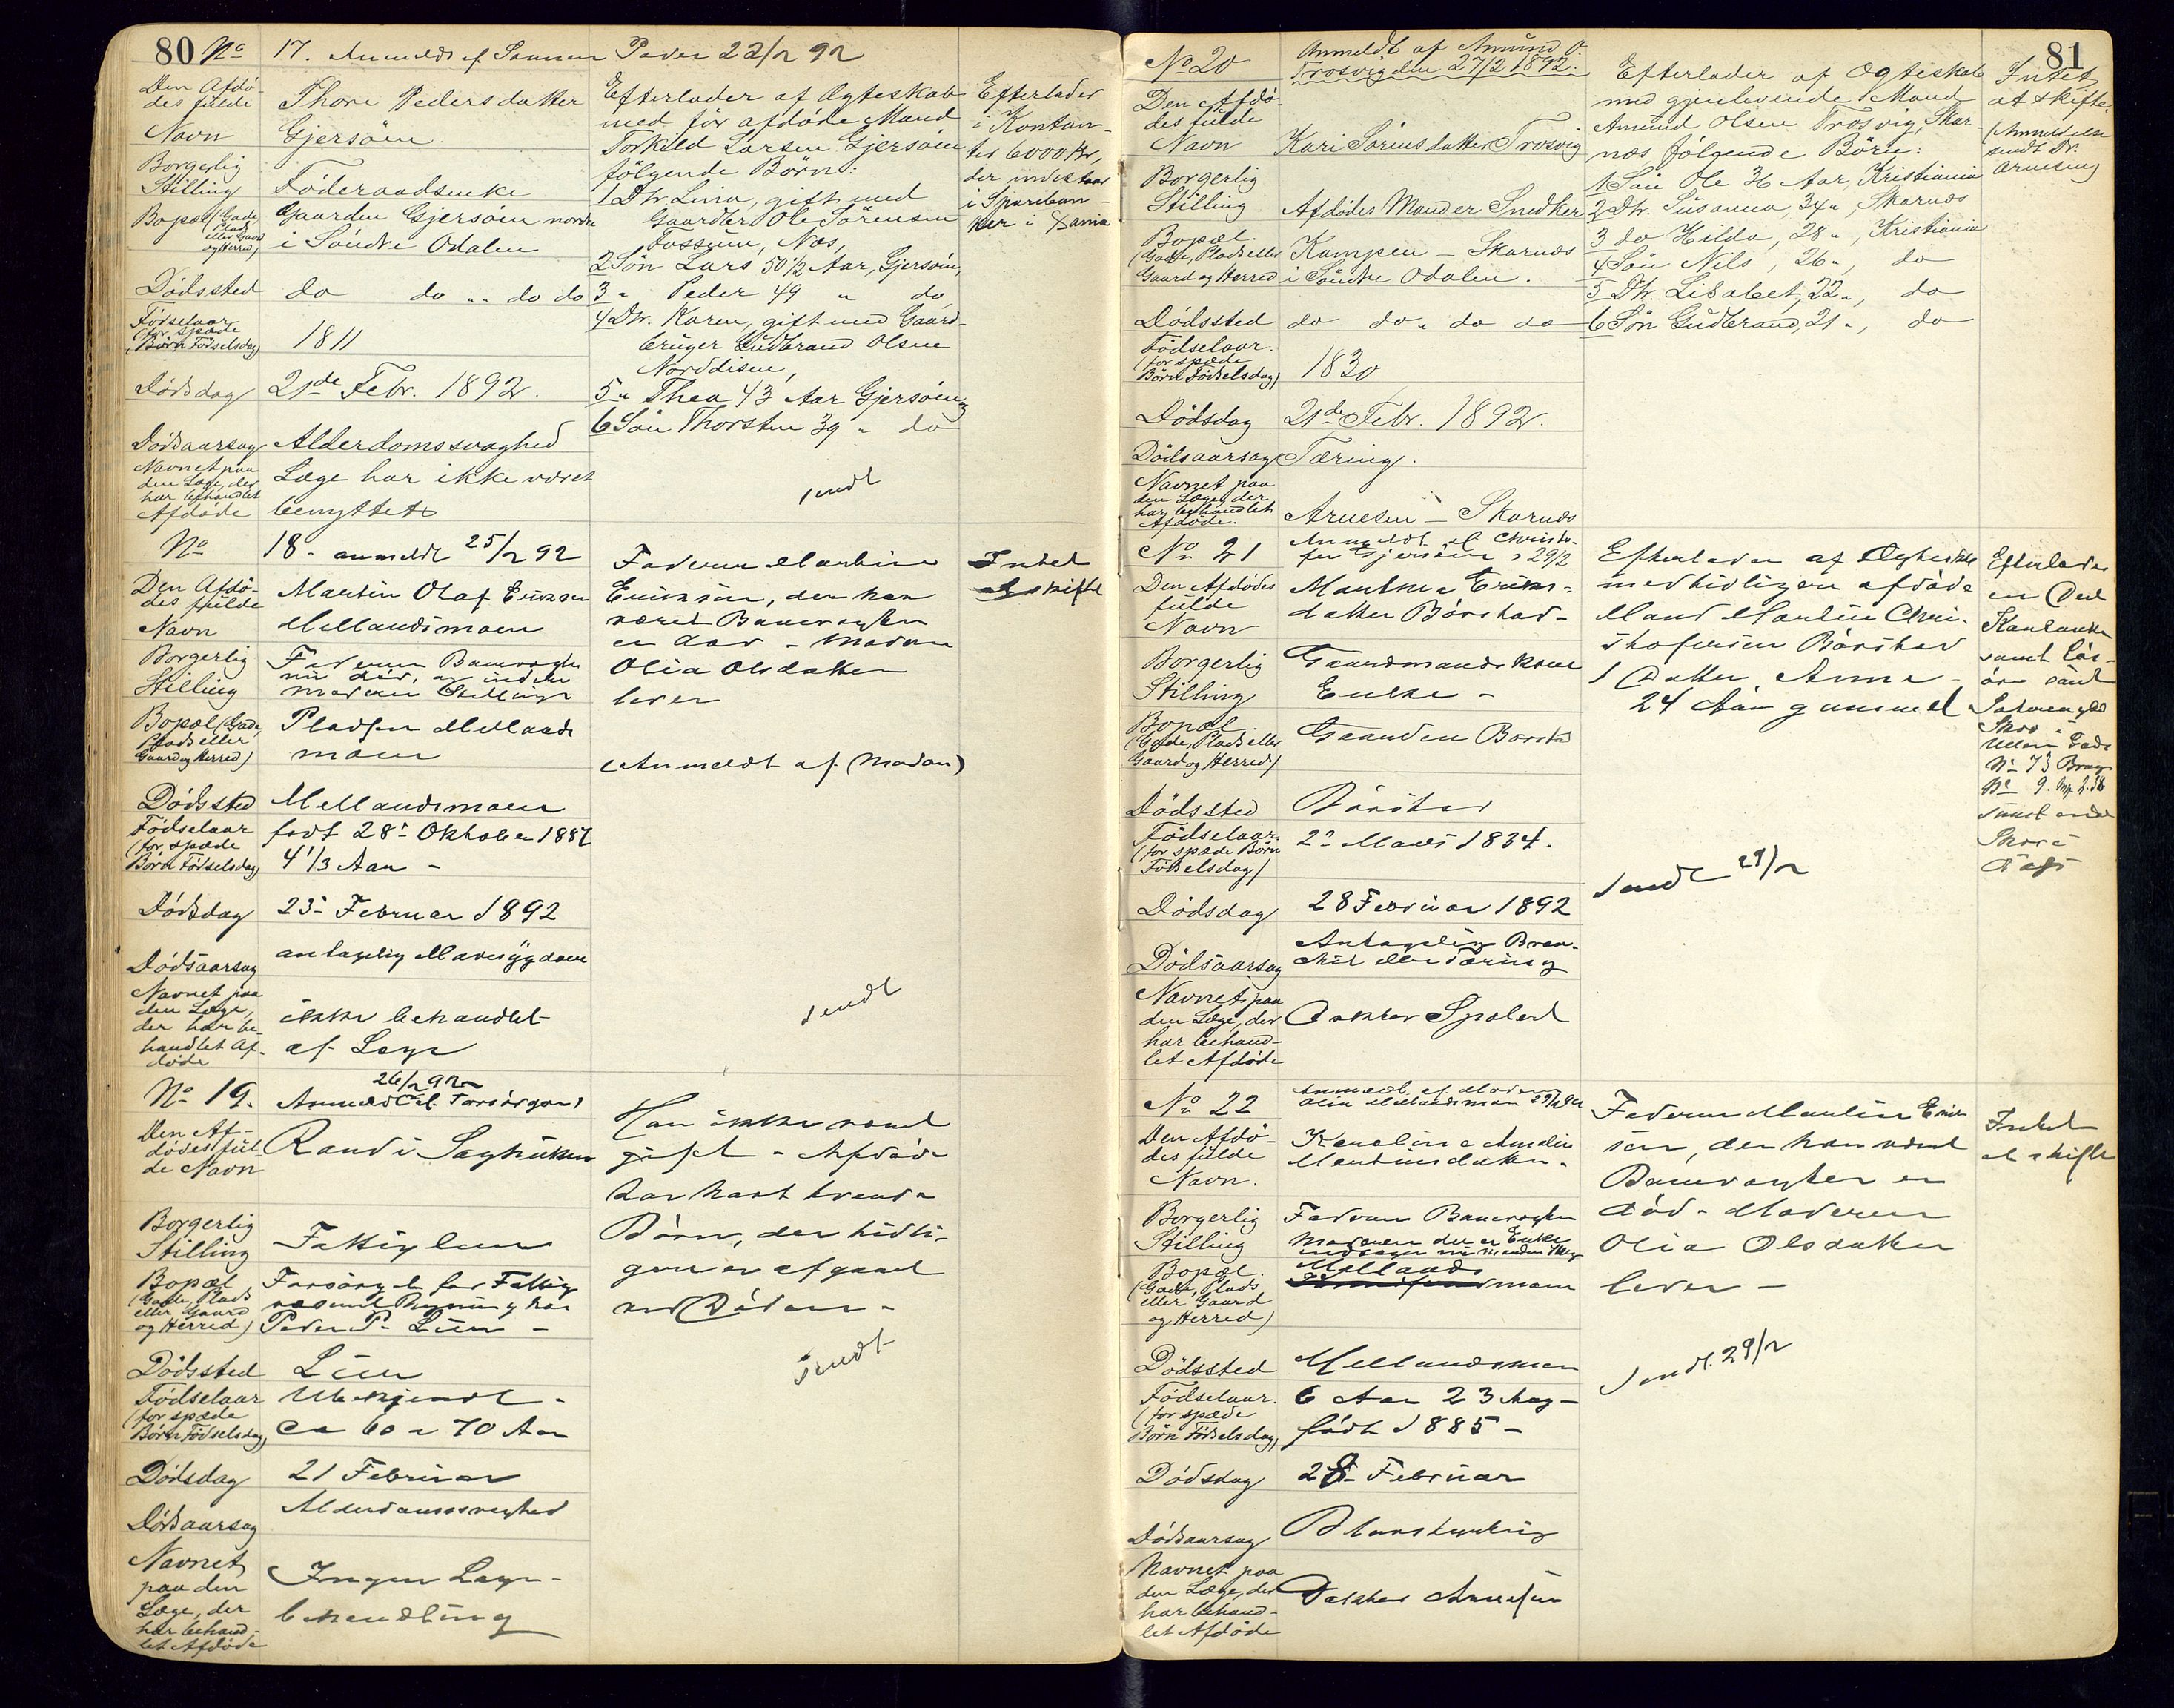 80 No 17. Anmeldt af Sønnen Peder 22/2 92
Den Afdø-
des fulde
Navn
Thore Pedersdatter
Gjersöien
Borgerlig
Stilling
Föderaadsenke
Bopæl (Gade,
Plads
eller Gaard
og Herred)
Gaarden Gjersöien nordre
i Söndre Odalen
Dödssted
do do " " do do
Födselaar
(for spæde
Börn Födselsdag)
1811
Dödsdag
21de Febr. 1892.
Dödsaarsag
Alderdomssvaghed
Navnet paa
den Læge, der
har behandlet
Afdöde
Læge har ikke været
benyttet
Efterlader af Ægteskab
med för afdöde Mand
Torkild Larsen Gjersöien
fölgende Börn:
1 Dtr. Lina, gift med
Gaardbr. Ole Sörensen
Fossum, Næs,
2 Sön Lars 50 1/2 Aar, Gjersöien,
3 " Peder 49 " do
4 Dtr. Karen, gift med Gaard-
bruger Gudbrand Olsen
Norddisen,
5 " Thea 43 Aar Gjersöien
6 Sön Thorsten 39 " do
sendt
Efterlader
i Kontan-
ter 6000 Kr,
der indestaar
i Spariban-
ker i
No
18 - anmeldt 25/2 92
Den Afdö-
des fulde
Navn
Martin Olaf Eriksen
Mellandsmoen
Borgerlig
Stilling
Faderen Banevogter
nu död, og
moderen
Bopæl (Gade,
Plads eller
Gaard og Herred)
Pladsen Mellands
moen
Dödssted
Mellandsmoen
Födselaar
(for spæde
Börn Födselsdag)
födt 28 Oktober 1887
4 1/3 Aar -
Dödsdag
25 Februar 1892
Dödsaarsag
antagelig Mavesygdom
Navnet paa
den Læge,
der har be-
handlet Af-
döde
ikke behandlet
af Læge
Faderen Martin
Eriksen, der har
været Banevogter
er död - Moderen
Olia Olsdatter
lever
(Anmeldt af Moderen)
sendt
Intet
at skifte
No 19.
26/2 92
Anmeldt af Forsörgeren
Den Af-
dödes ful-
de Navn
Randi Saghuken
Borgerlig
Stilling
Fattiglem
Bopæl
(Gade, Plads
eller Gaard
og Herred)
Forsörget for Fattig
væsenets Regning hos
Peder P. Lien -
Dödssted
Lien
Födselaar
(for spæde
Börn Födselsdag)
Ubekjendt -
ca 60 a 70 Aar
Dödsdag
21 Februar
Dödsaarsag
Alderdomssvaghed
Navnet
paa den
Læge, der
har behand-
let Afdöde
Ingen Læge-
behandling
Har ikke været
gift - Afdöde
har havt tvende
Börn, der tidli-
gere er afgaaet
ved Döden -
sendt
81
No 20
Anmeldt af Amund O.
Trosvig den 27/2 1892.
Den Afdö-
des fulde
Navn
Kari Sörensdatter Trosvig
Borgerlig
Stilling
Afdödes Mand er Snedker
Bopæl.
(Gade, Plads eller
Gaard og Herred
Kampen - Skarnæs
i Söndre Odalen.
Dödssted
do do " do do
Födselaar.
(for spæde
Börn Födselsdag)
1830
Dödsdag
21de Febr. 1892.
Dödsaarsag
Tæring.
Navnet paa
den Læge, der
har behandlet
Afdöde.
Arnesen - Skarnæs
Efterlader af Ægteskab
med gjenlevende Mand
Amund Olsen Trosvig, Skar-
næs fölgende Börn:
1 Sön Ole 36 Aar, Kristiania
2 Dtr. Susanna, 34 ", Skarnæs
3 do Hilda, 28 ", Kristiania
4 Sön Nils, 26 ", do
5 Dtr. Lisabet, 22 ", do
6 Sön Gudbrand, 21 ", do
Intet
at skifte
(Anmeldelse
sendt Dr.
Arnesen)
No 21
Anmeldt af Christo-
fer Gjersöien 29/2
Den Afdödes
fulde
Navn
Marthea Eriks-
datter Börstad -
Borgerlig
Stilling
Gaardmandskone
Enke -
Bopæl
(Gade, Plads eller
Gaard og Herred)
Gaarden Börstad
Dödssted
Börstad
Födselaar.
(for spæde Börn
Födselsdag)
2 Marts 1834.
Dödsdag
28 Februar 1892
Dödsaarsag
Antagelig Bron-
chit eller Tæring
Navnet paa
den Læge, der
har behand-
let Afdöde
Doktor
Efterlader af Ægteskab
med tidligere afdöde
Mand Martin Chri-
stofersen Börstad
1 Datter Anna -
24 Aar gammel
sendt 29/2
Efterlader
en Del
Kontanter
samt Lös-
öre samt
Skov i
No 73 Brug
No 9.
samt andre
Skov i
No 22
Anmeldt af Moderen
Olia Mellandsmoen 29/2 92
Den Afdö-
des fulde
Navn.
Karoline Amalie
Martinsdatter -
Borgerlig
Stilling
Faderen Banevogter
Moderen der er Enke
Bopæl.
(Gade, Plads
eller Gaard
og Herred)
Mellands
moen
Dödssted
Mellandsmoen
Födselaar.
(for spæde
Börn Födselsdag)
6 Aar 23 Aug -
födt 1885 -
Dödsdag
28 Februar
Dödsaarsag
Navnet paa
den Læge, der
har behand-
let Afdöde
Doktor Arnesen
Faderen Martin Erik-
sen, der har været
Banevogter er
död - Moderen
Olia Olsdatter
lever -
sendt 29/2
Intet
at skifte